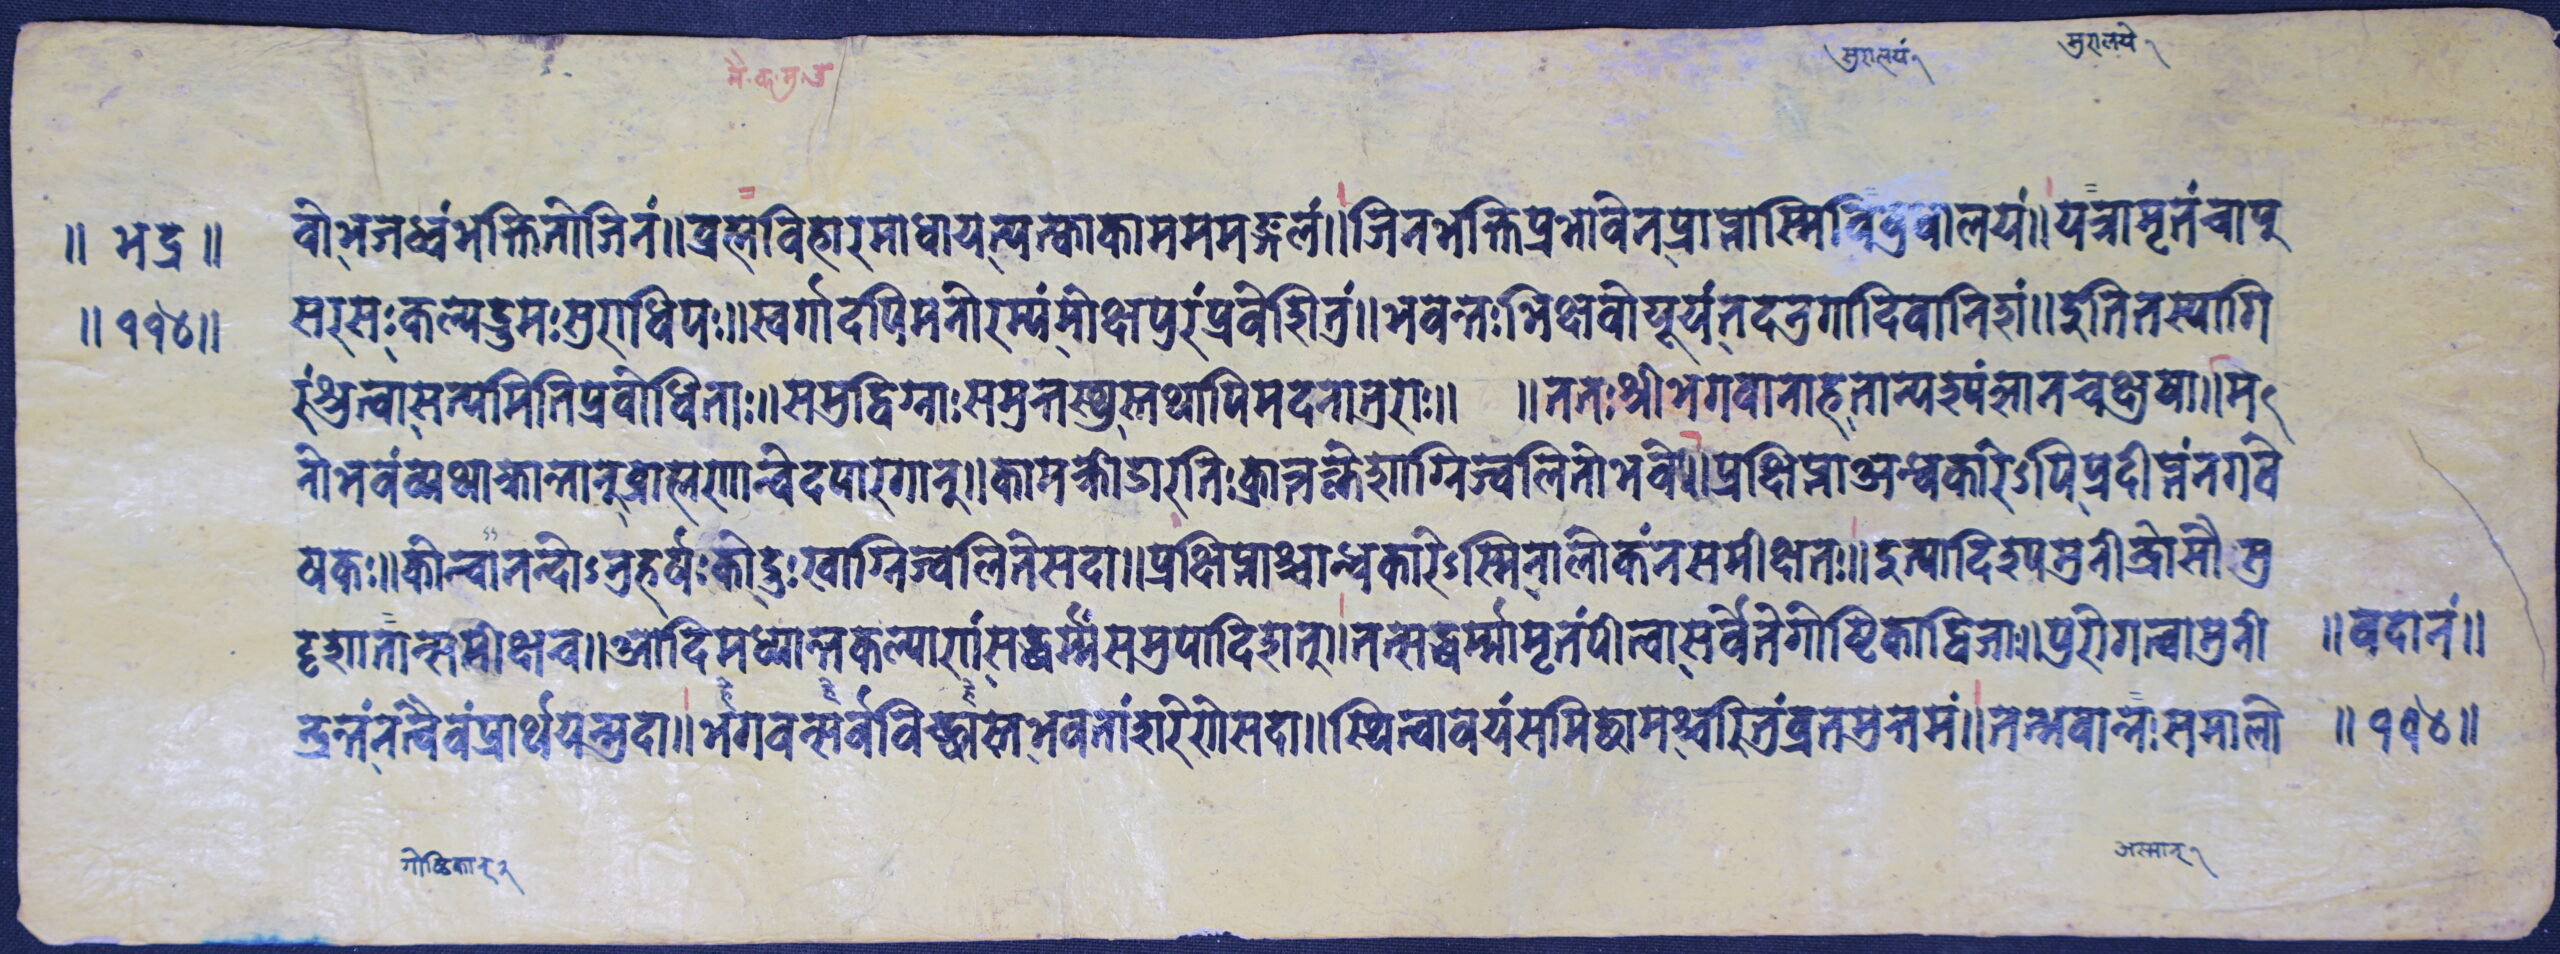 मै.क.मु.उ
सुरालयं १
सुरालये १
॥ भद्र ॥
वो भजध्वंभक्तितोजिनं॥ब्रह्मविहारमाधायत्यत्क्वाकाममममङ्गलं॥जिनभक्तिप्रभावेनप्राप्तोस्मिविबुधालयं॥यत्रामृतंचाप्
॥ ११४ ॥
सरसःकल्पद्रुमःसुराधिपः॥स्वर्गादपिमनोरम्यंमोक्षपुरंप्रवेशितुं॥भवन्तःभिक्षवोयूयंतदनुगादिवानिशं॥इतितस्यागि
रंश्रुत्वासत्यमितिप्रबोधिताः॥समुद्विग्नाःसमुत्तस्थुस्तथापिमदनातुराः॥ ॥ततःश्रीभगवानाहतान्पश्यंज्ञानचक्षुषा॥म
नोभवंव्यथाक्रान्तान्ब्राह्मणान्वेदपारगान्॥कामक्रीडारतिःक्रान्तक्लेशाग्निज्वलितोभवे॥प्रक्षिप्ताअन्धकारेऽपिप्रदीप्तंनगवे
षकः॥कोन्वानन्दोऽनुहर्षःकोदुःखाग्निज्वलितेसदा॥प्रक्षिप्ताश्चान्धकारेऽस्मिनालोकंनसमीक्षतः॥इत्यादिश्यमुनीन्द्रोसौसु
दृशातान्समीक्षच॥आदिमध्यान्तकल्याणंसद्धर्म्मंसमुपादिशत्॥तत्सद्धर्म्मामृतंपीत्वासर्वेतेगोष्टिकाद्विजाः॥पुरोगत्वामुनी
॥ वदानं ॥
न्द्रन्तंनत्वैवंप्रार्थयन्मुदा॥भगवन्सर्वविच्छास्तभवतांशरणेसदा॥स्थित्वावयंसमिच्छामश्चरितुंव्रतमुत्तमं॥तद्भवान्नःसमालो
॥ ११४ ॥
गोष्ठिकान् २
अस्मान् १